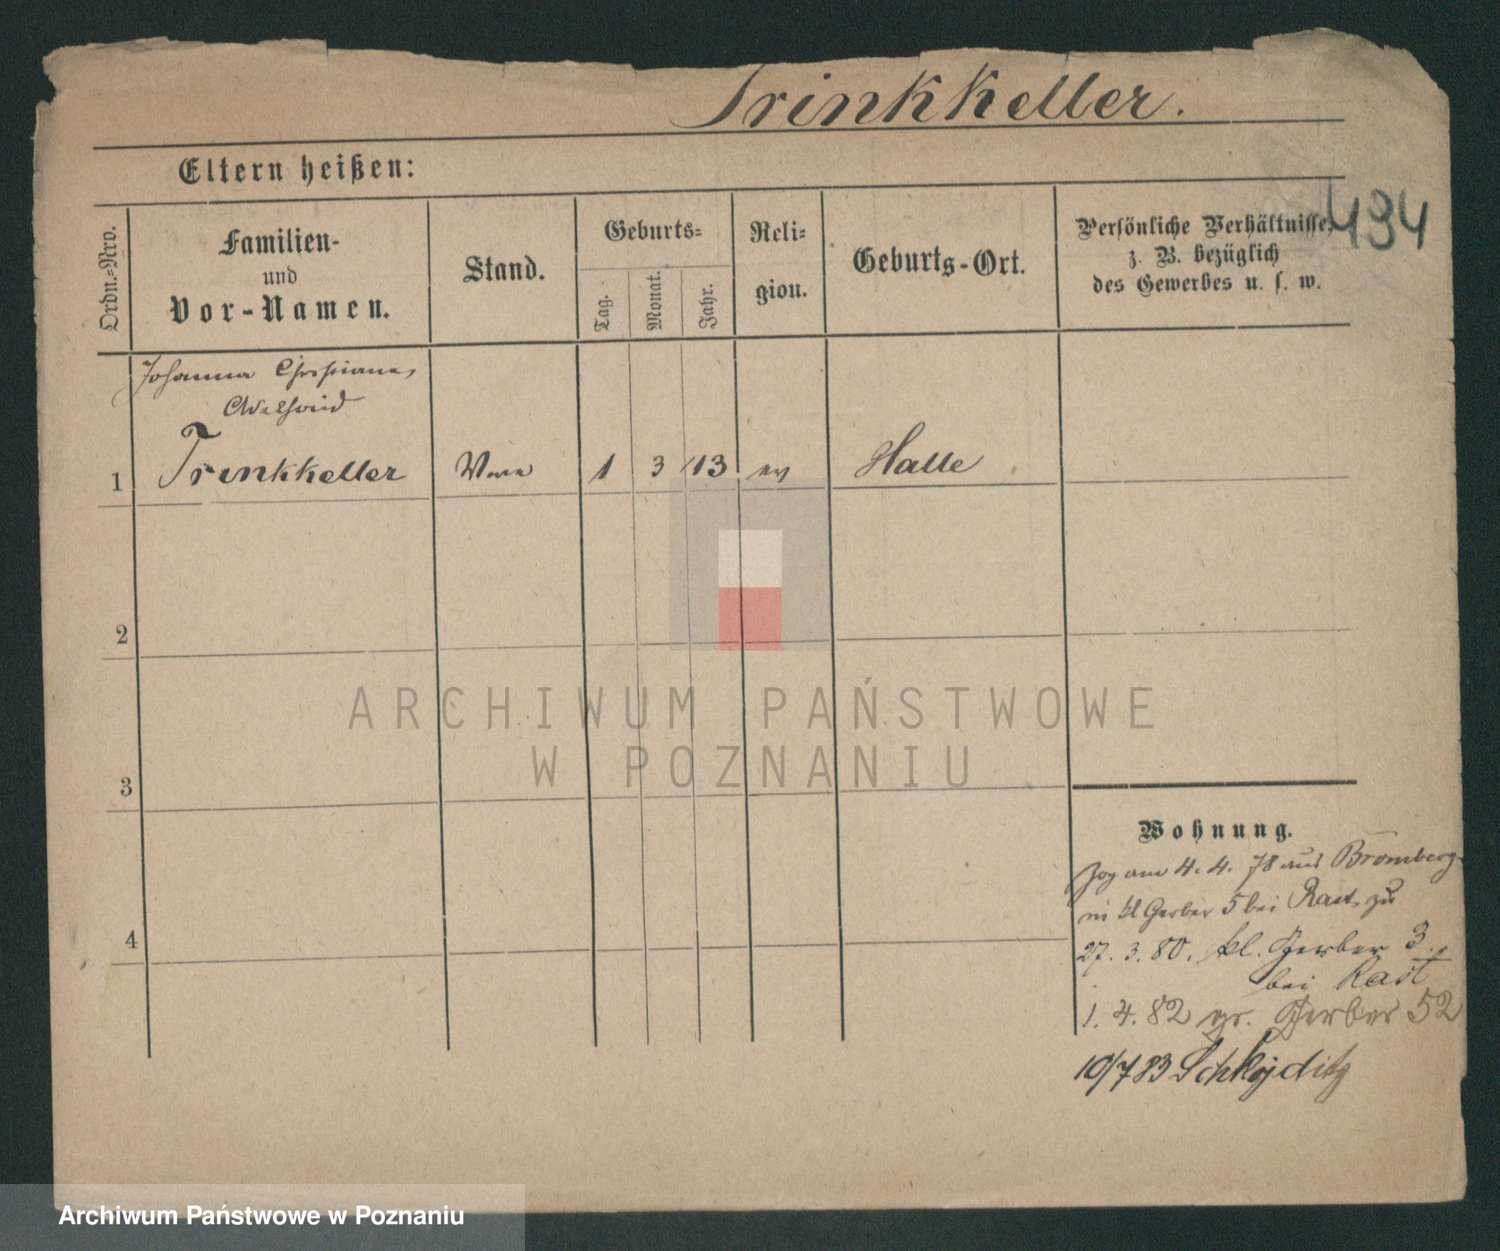 Trinkkeller.
Eltern heißen:
494
Ordn.-Nro.
Familien-
und
Vor-Namen.
Stand.
Geburts-
Tag.
Monat.
Jahr.
Reli-
gion.
Geburts-Ort.
Persönliche Verhältnisse,
z. B. bezüglich
des Gewerbes u. s. w.
Johanna
Adelheid
1 Trinkkeller 1 3 13 ev Halle
2
3
4
Wohnung.
Zog am 4. 4. 78 aus Bromberg
in kl Gerber 5 bei Rast zu
27. 3. 80. kl. Gerber 3.
bei Rast
1. 4. 82 gr. Gerber 52
10/7 83 Schkeuditz
ARCHIWUM PAŃSTWOWE
W POZNANIU
Archiwum Państwowe w Poznaniu